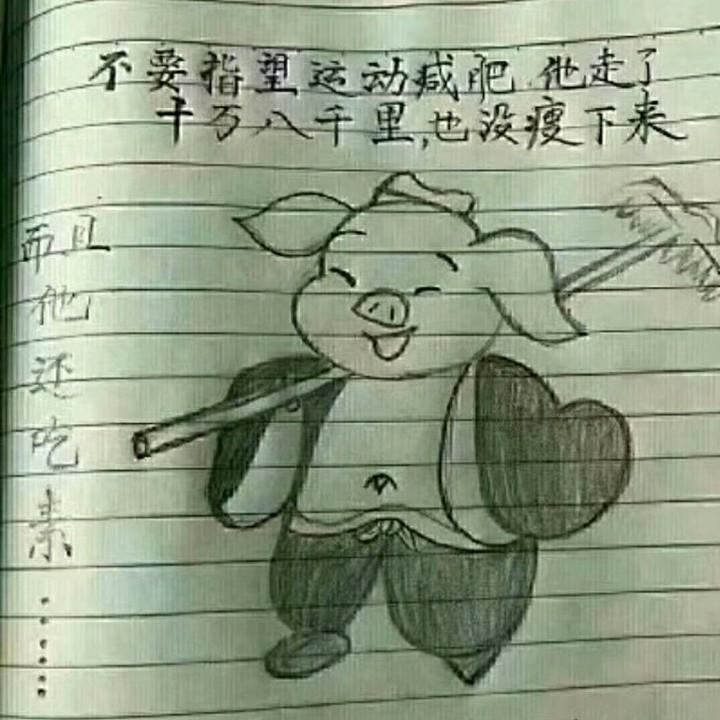 不要指望运动减肥.他走了
十万八千里,也没瘦下来
而且他还吃素……